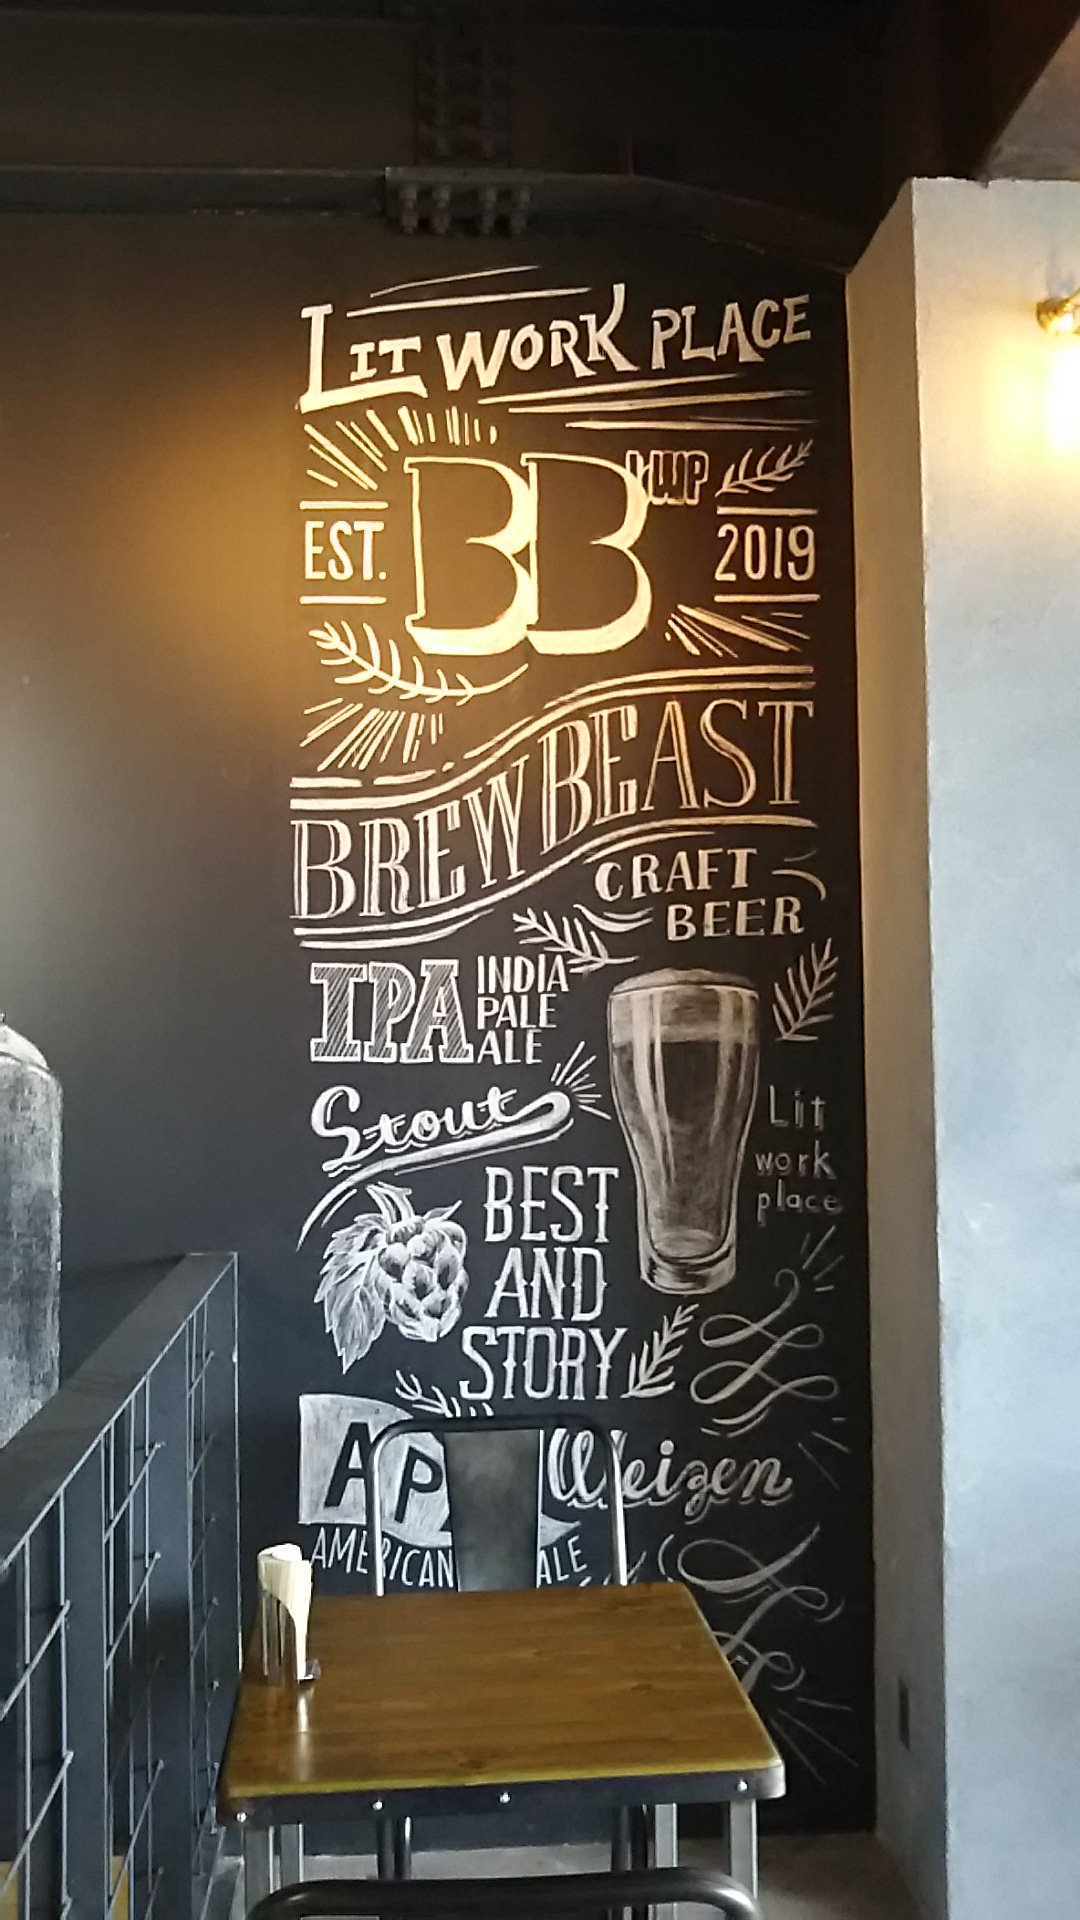 LIT WORK PLACE
BB LWP
EST. 2019
BREW BEAST
CRAFT
BEER
IPA
INDIA
PALE
ALE
Stout
Lit
work
place
BEST
AND
STORY
AP
Weizen
AMERICAN ALE